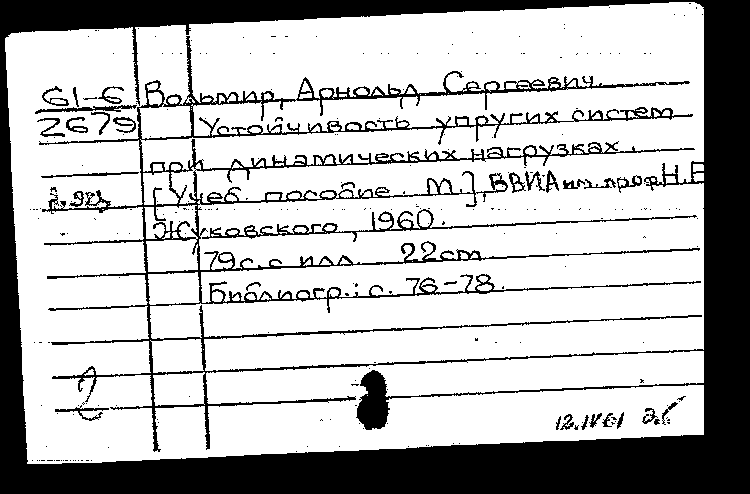 61-6 Вольмир, Арнольд Сергеевич.
2679 Устойчивость упругих систем
при динамических нагрузках.
[Учеб. пособие. М.], ВВИА им. проф. Н.Е
Жуковского, 1960.
79 с. с илл. 22 cm
Библиогр.: с. 76-78.
2
12.IV 61